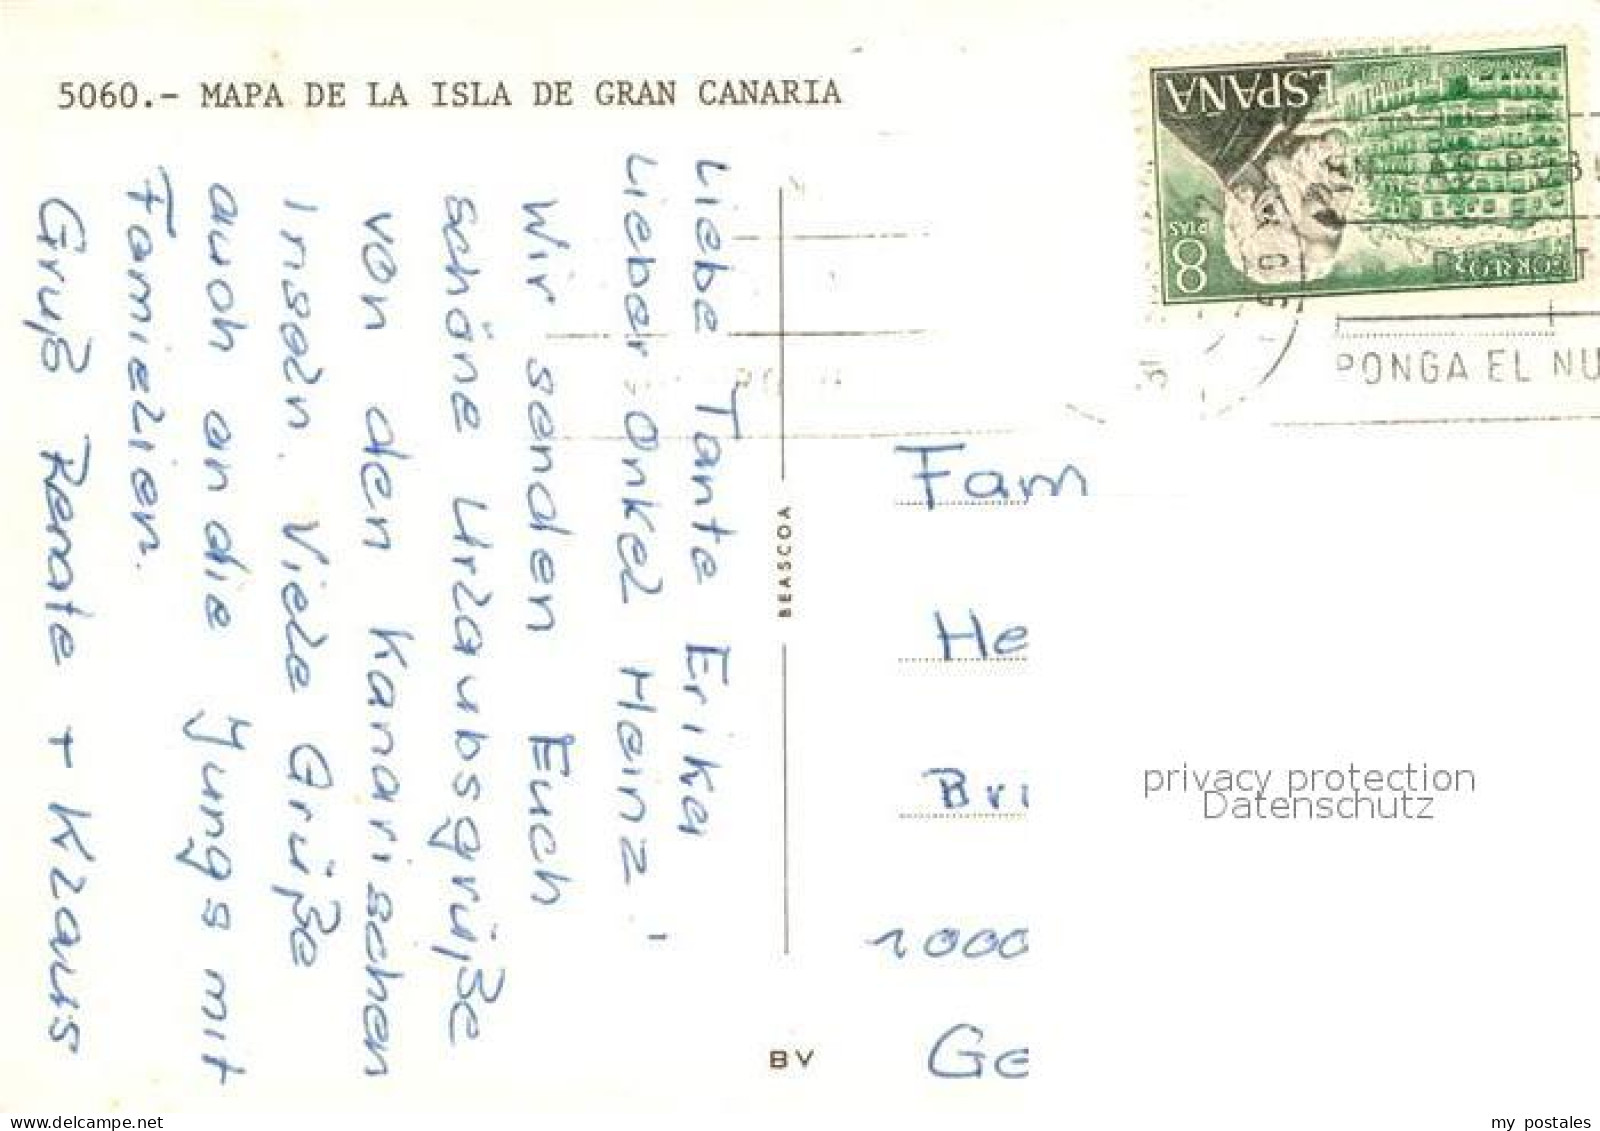 5060.- MAPA DE LA ISLA DE GRAN CANARIA
Liebe Tante Erika
Lieber Onkel Heinz,
Wir senden Euch
schöne Urlaubsgrüße
von den Kanarischen
Inseln. Viele Grüße
auch an die Jungs mit
Familien.
Gruß Renate + Klaus
BEASCOA
BV
ESPAÑA
CORREOS
8
PTAS
PONGA EL NU
Fam
He
Bri
1000
Ge
privacy protection
Datenschutz
www.delcampe.net
my_postales